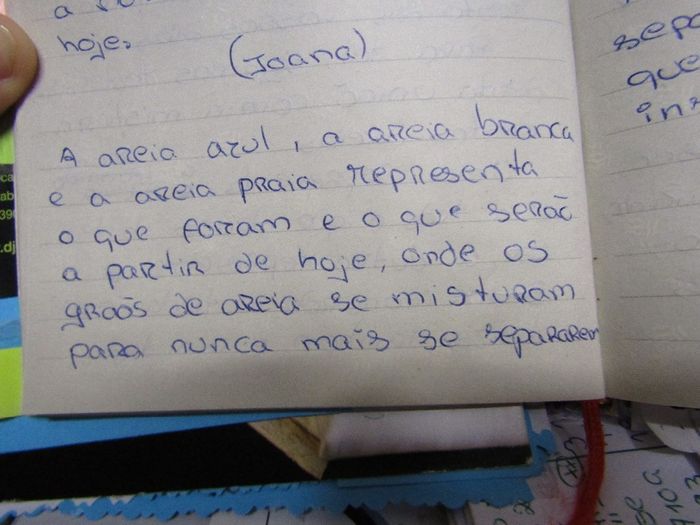 hoje.
(Joana)
A areia azul, a areia branca
e a areia praia representa
o que foram e o que serão
a partir de hoje, onde os
graõs de areia se misturam
para nunca mais se separarem
sepa
que
ins